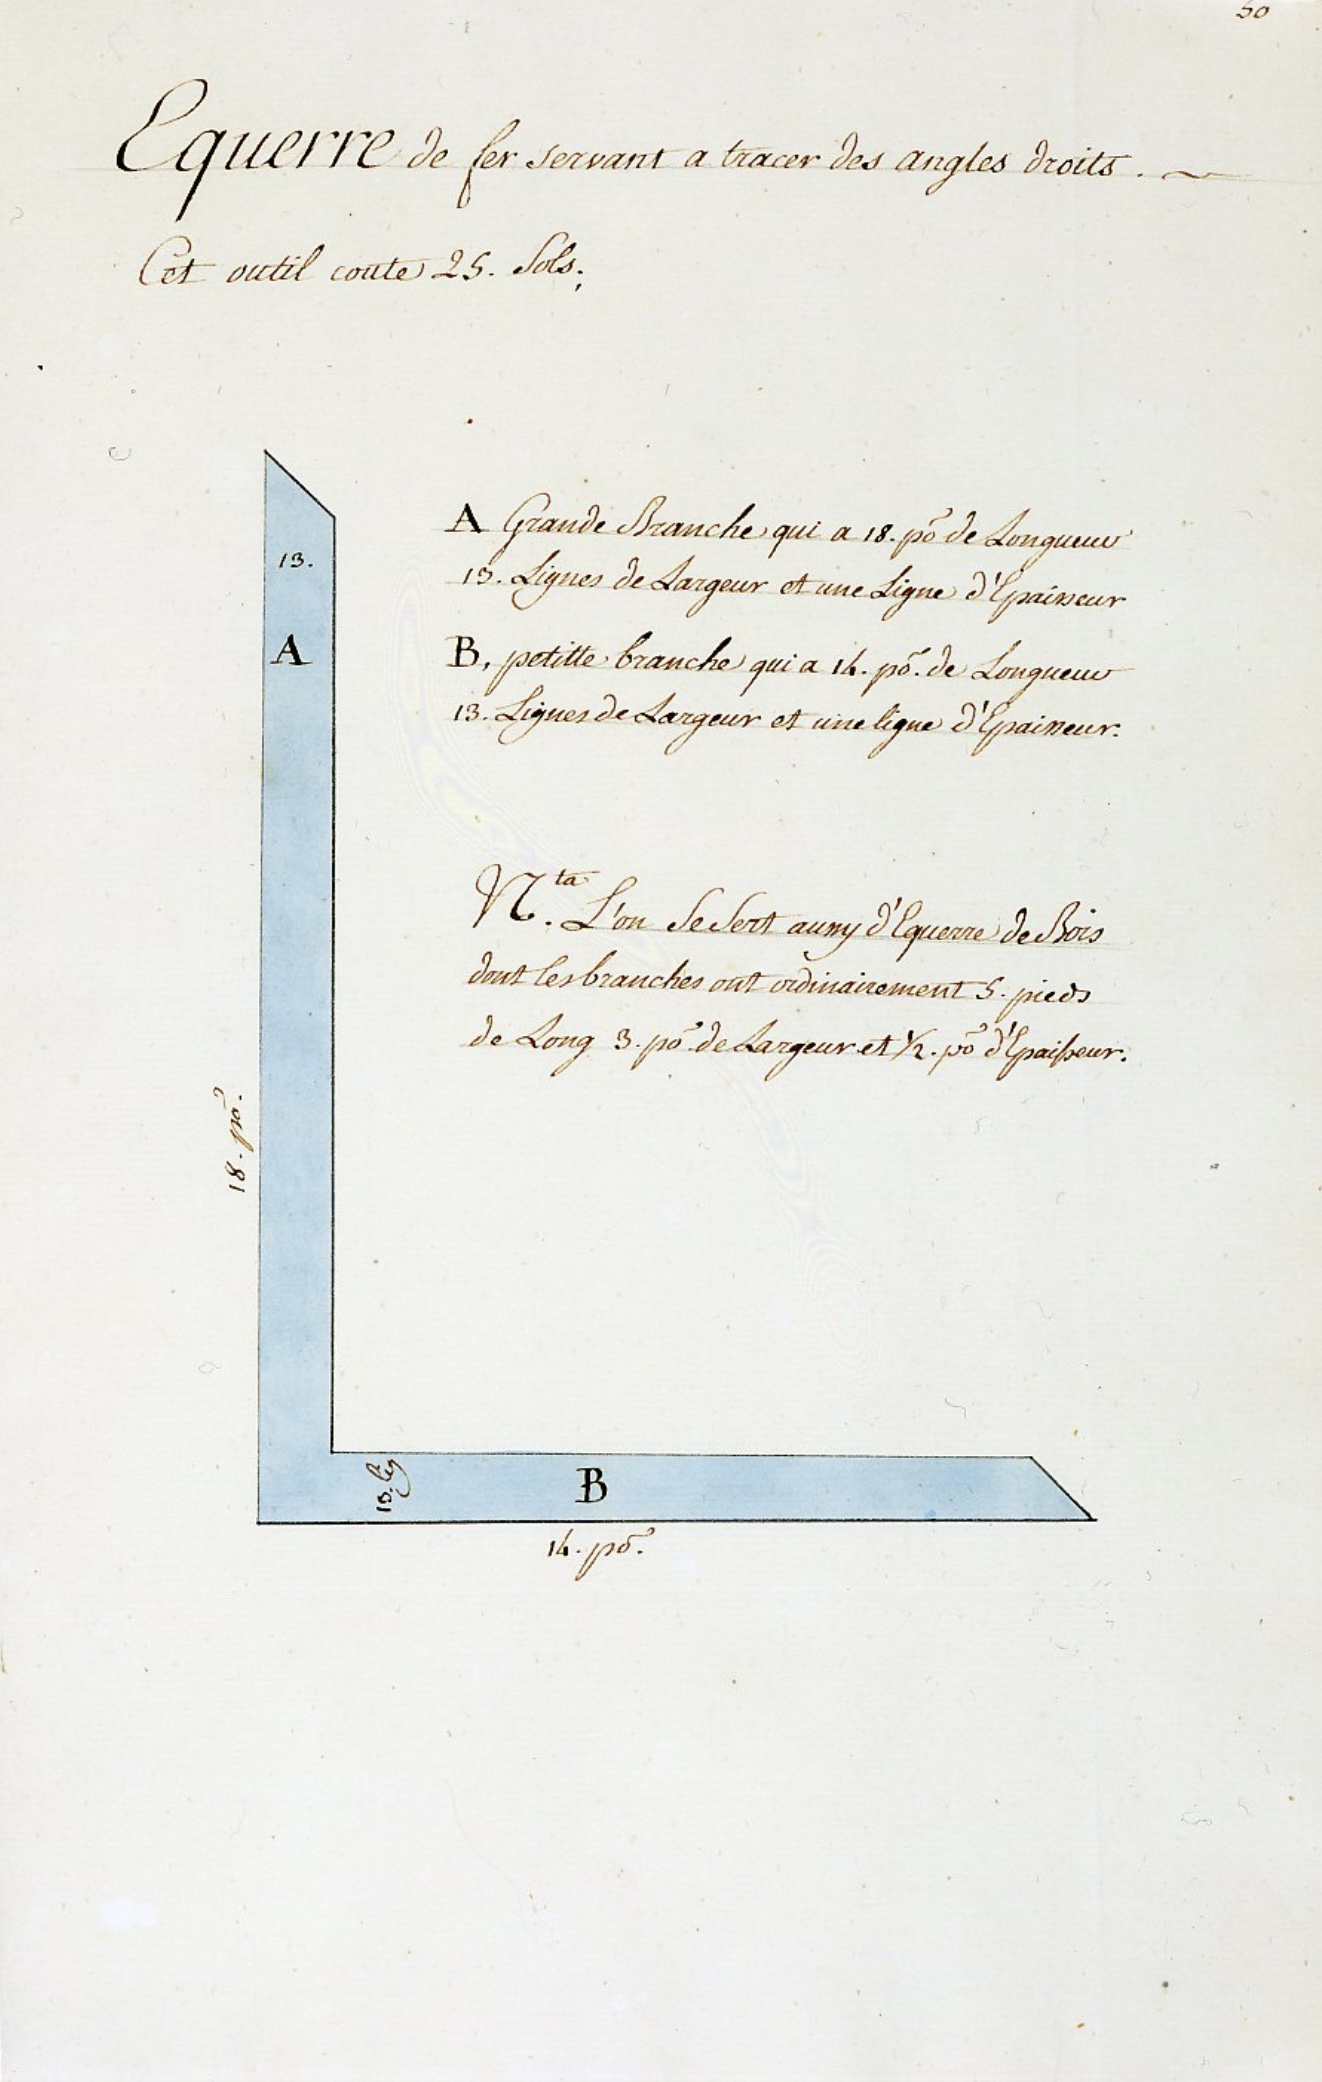 50
Equerre de fer servant a tracer des angles droits.
Cet outil coute 25. Sols.
13.
A
A Grande Branche qui a 18. po de Longueur
13. Lignes de Largeur et une Ligne d'Epaisseur
B, petitte branche qui a 14. po. de Longueur
13. Lignes de Largeur et une ligne d'Epaisseur.
N.ta L'on se sert aussy d'Equerre de Bois
dont les branches ont ordinairement 5. pieds
de Long 3. po de Largeur et 1/2. po d'Epaisseur.
18. po.
13. lig
B
14. po.